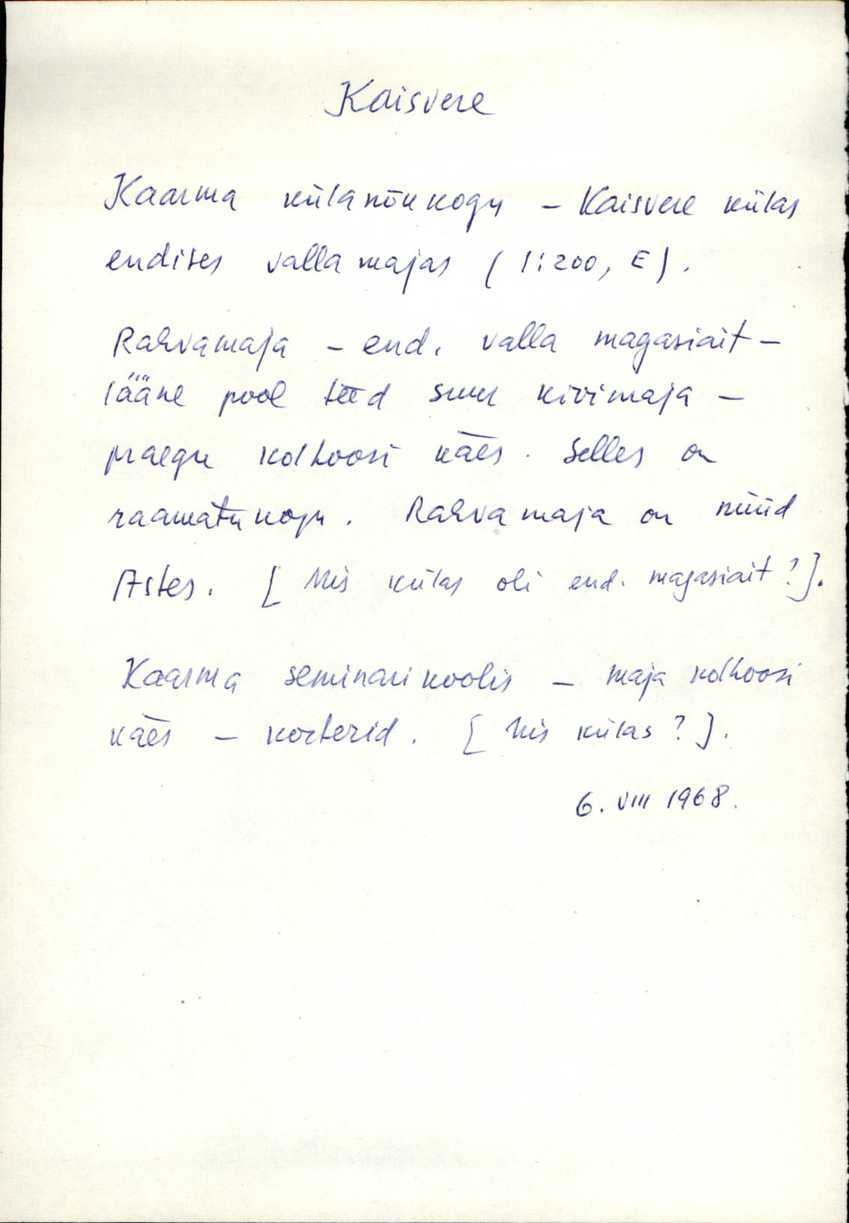 Kaisvere
Kaarma külanõukogu – Kaisvere külas
endises vallamajas (1:200, E).
Rahvamaja – end. valla magasiait –
lääne pool teed suur kivimaja –
praegu kolhoosi käes. Selles on
raamatukogu. Rahvamaja on nüüd
Astes. [Mis külas oli end. magasiait?].
Kaarma seminari koolis – maja kolhoosi
käes – korterid. [Mis külas?].
6. VIII 1968.